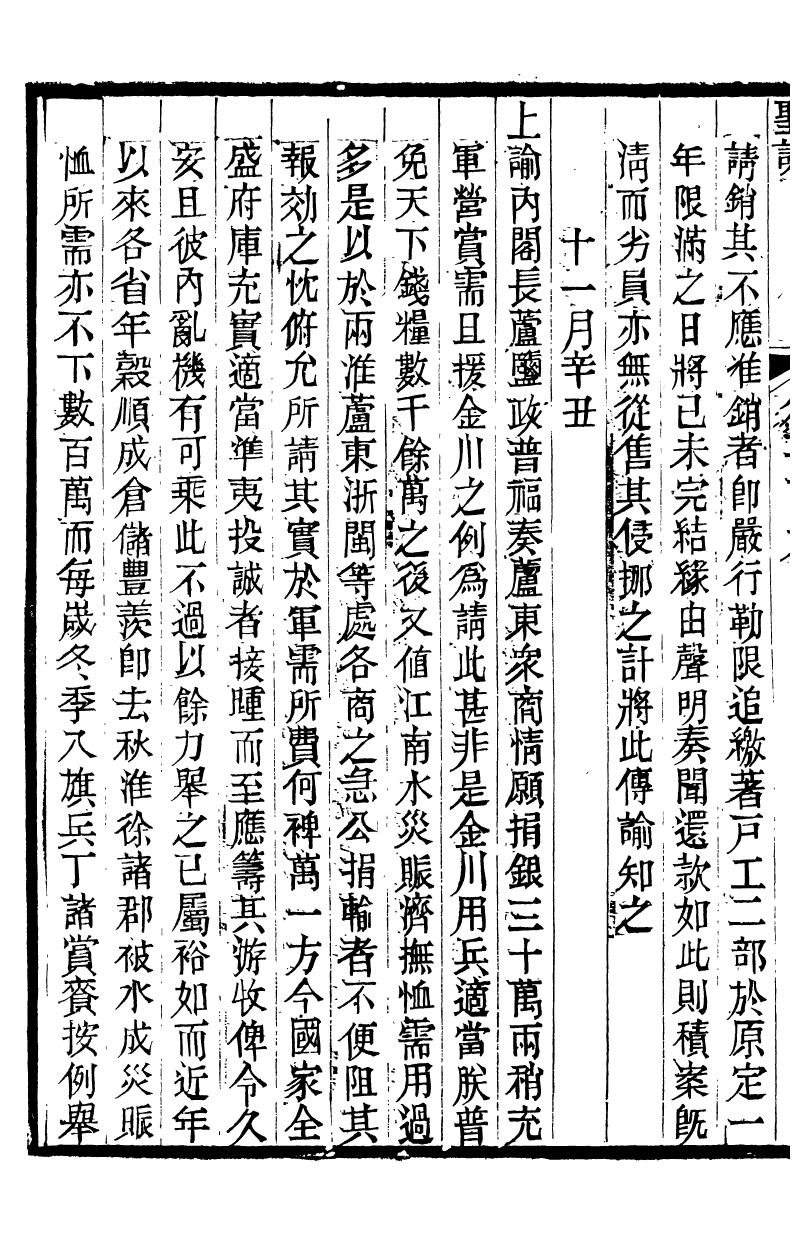 聖訓
請銷其不應准銷者卽嚴行勒限追繳著戸工二部於原定一
年限滿之日將已未完結緣由聲明奏聞還款如此則積案旣
淸而劣員亦無從售其侵挪之計將此傳諭知之
十一月辛丑
上諭內閣長蘆鹽政普福奏蘆東衆商情願捐銀三十萬兩稍充
軍營賞需且援金川之例爲請此甚非是金川用兵適當朕普
免天下錢糧數千餘萬之後又值江南水災賑濟撫恤需用過
多是以於兩淮蘆東浙閩等處各商之急公捐輸者不便阻其
報効之忱俯允所請其實於軍需所費何裨萬一方今國家全
盛府庫充實適當準夷投誠者接踵而至應籌其游牧俾令久
安且彼內亂機有可乘此不過以餘力舉之已屬裕如而近年
以來各省年穀順成倉儲豐羨卽去秋淮徐諸郡被水成災賑
恤所需亦不下數百萬而每歲冬季八旗兵丁諸賞賚按例舉